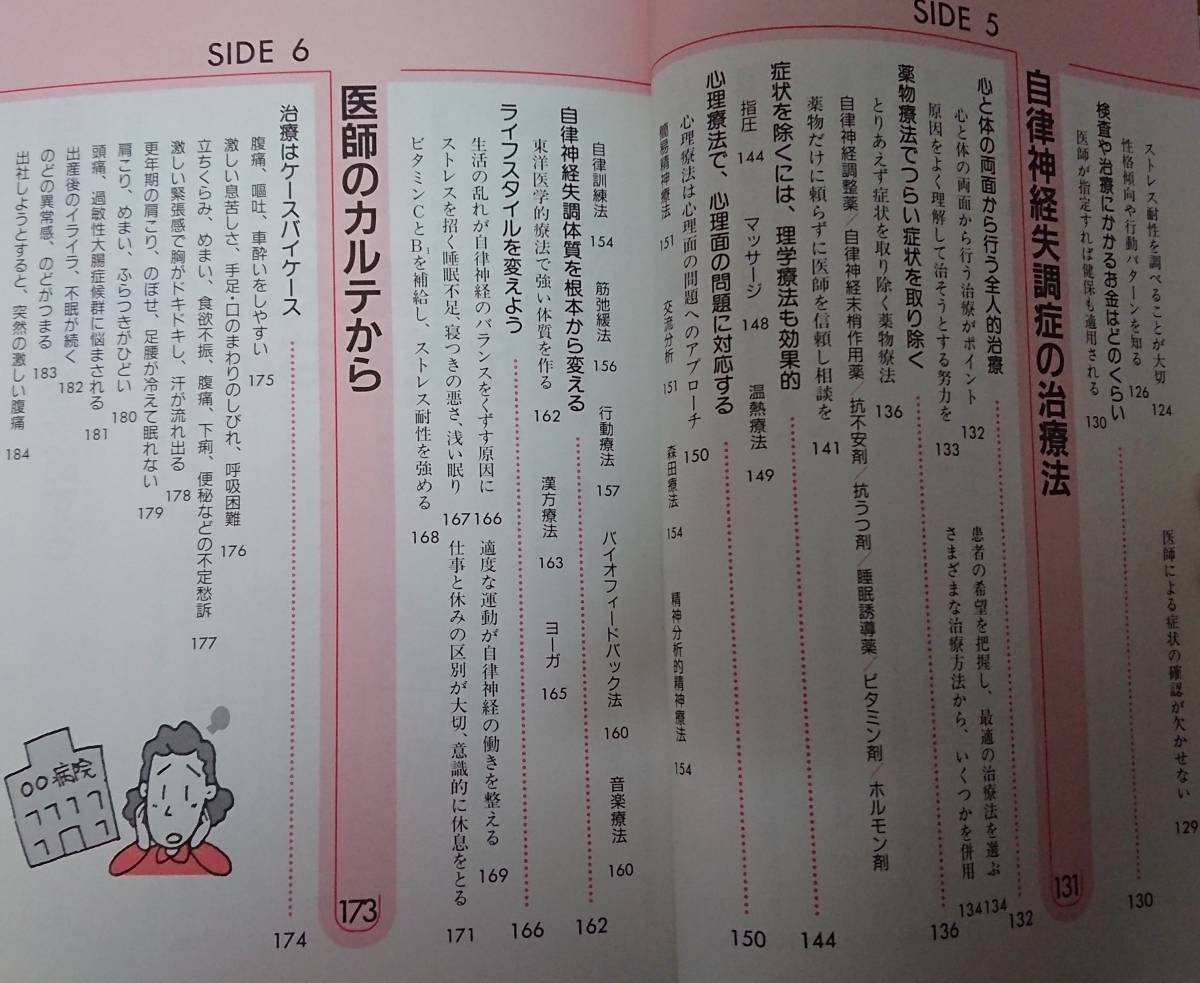 ストレス耐性を調べることが大切 124
性格傾向や行動パターンを知る 126
医師による症状の確認が欠かせない 129
検査や治療にかかるお金はどのくらい 130
医師が指定すれば健保も適用される 130
SIDE 5
自律神経失調症の治療法 131
心と体の両面から行う全人的治療 132
心と体の両面から行う治療がポイント 132
患者の希望を把握し、最適の治療法を選ぶ 134
原因をよく理解して治そうとする努力を 133
さまざまな治療方法から、いくつかを併用 134
薬物療法でつらい症状を取り除く 136
とりあえず症状を取り除く薬物療法 136
自律神経調整薬/自律神経末梢作用薬/抗不安剤/抗うつ剤/睡眠誘導薬/ビタミン剤/ホルモン剤
薬物だけに頼らずに医師を信頼し相談を 141
症状を除くには、理学療法も効果的 144
指圧 144 マッサージ 148 温熱療法 149
心理療法で、心理面の問題に対応する 150
心理療法は心理面の問題へのアプローチ 150
簡易精神療法 151 交流分析 151 森田療法 154 精神分析的精神療法 154
自律訓練法 154 筋弛緩法 156 行動療法 157 バイオフィードバック法 160 音楽療法 160
自律神経失調体質を根本から変える 162
東洋医学的療法で強い体質を作る 162 漢方療法 163 ヨーガ 165
ライフスタイルを変えよう 166
生活の乱れが自律神経のバランスをくずす原因に 166
適度な運動が自律神経の働きを整える 169
ストレスを招く睡眠不足、寝つきの悪さ、浅い眠り 167
仕事と休みの区別が大切、意識的に休息をとる 171
ビタミンCとB₁を補給し、ストレス耐性を強める 168
SIDE 6
医師のカルテから 173
治療はケースバイケース 174
腹痛、嘔吐、車酔いをしやすい 175
激しい息苦しさ、手足・口のまわりのしびれ、呼吸困難 176
立ちくらみ、めまい、食欲不振、腹痛、下痢、便秘などの不定愁訴 177
激しい緊張感で胸がドキドキし、汗が流れ出る 178
更年期の肩こり、のぼせ、足腰が冷えて眠れない 179
肩こり、めまい、ふらつきがひどい 180
頭痛、過敏性大腸症候群に悩まされる 181
出産後のイライラ、不眠が続く 182
のどの異常感、のどがつまる 183
出社しようとすると、突然の激しい腹痛 184
○○病院